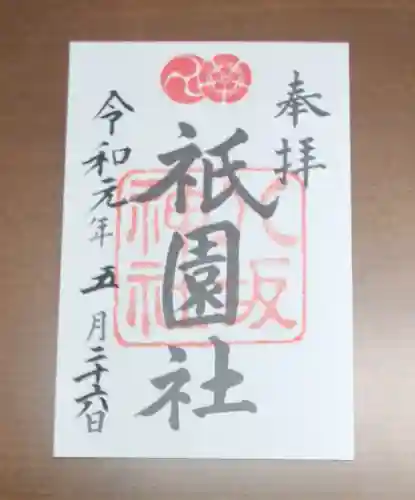 奉拝
八坂神社
祇園社
令和元年五月二十六日